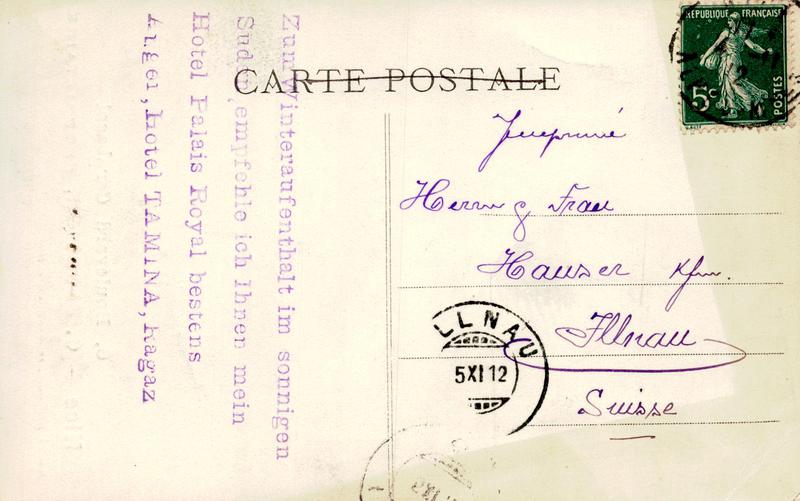 CARTE POSTALE
Zum Winteraufenthalt im sonnigen
Suden, empfehle ich Ihnen mein
Hotel Palais Royal bestens
Angel, Hotel TAMINA, Ragaz
RÉPUBLIQUE FRANÇAISE
5c
POSTES
Imprimé
Herrn & Frau
Hauser Kfm.
Illnau
Suisse
ILLNAU
5XI12